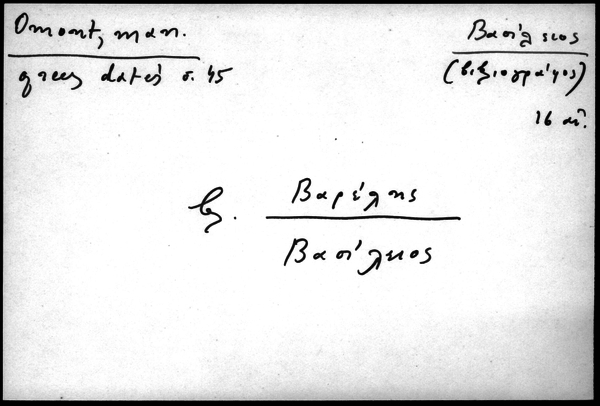 Omont, man.
grecs datés σ. 45
Βασίλειος
(βιβλιογράφος)
16 αἰ.
βλ. Βαρέλης
Βασίλειος